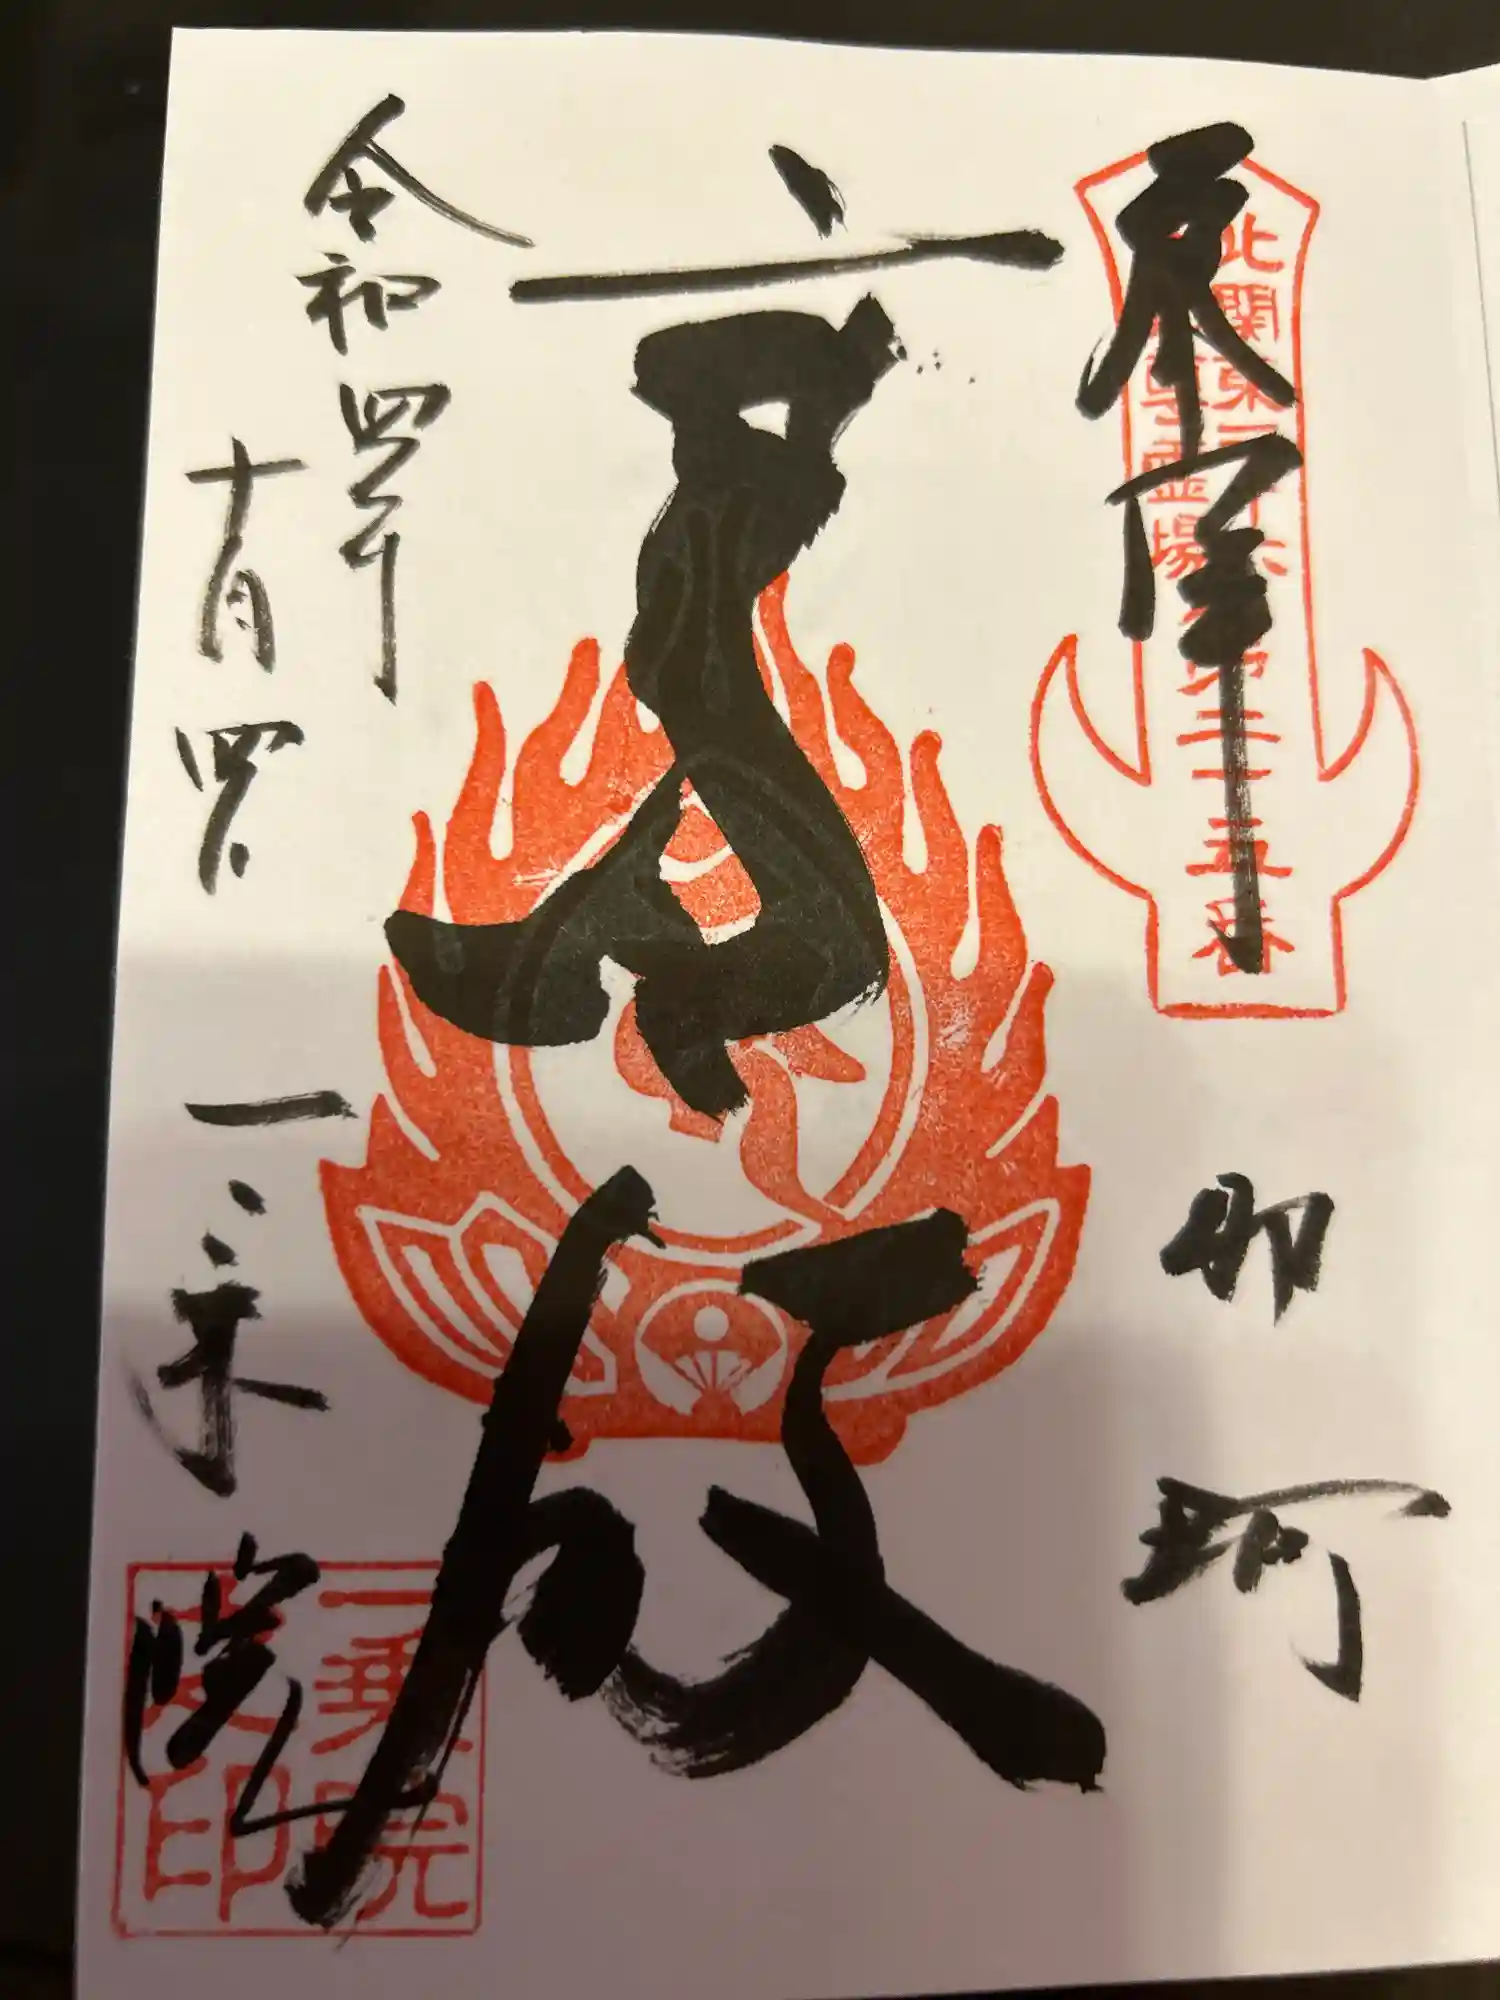 奉拝
北関東三十六
不動尊霊場
第二十五番
那珂
令和四年
十月四日
一乗院
一乗院
之印